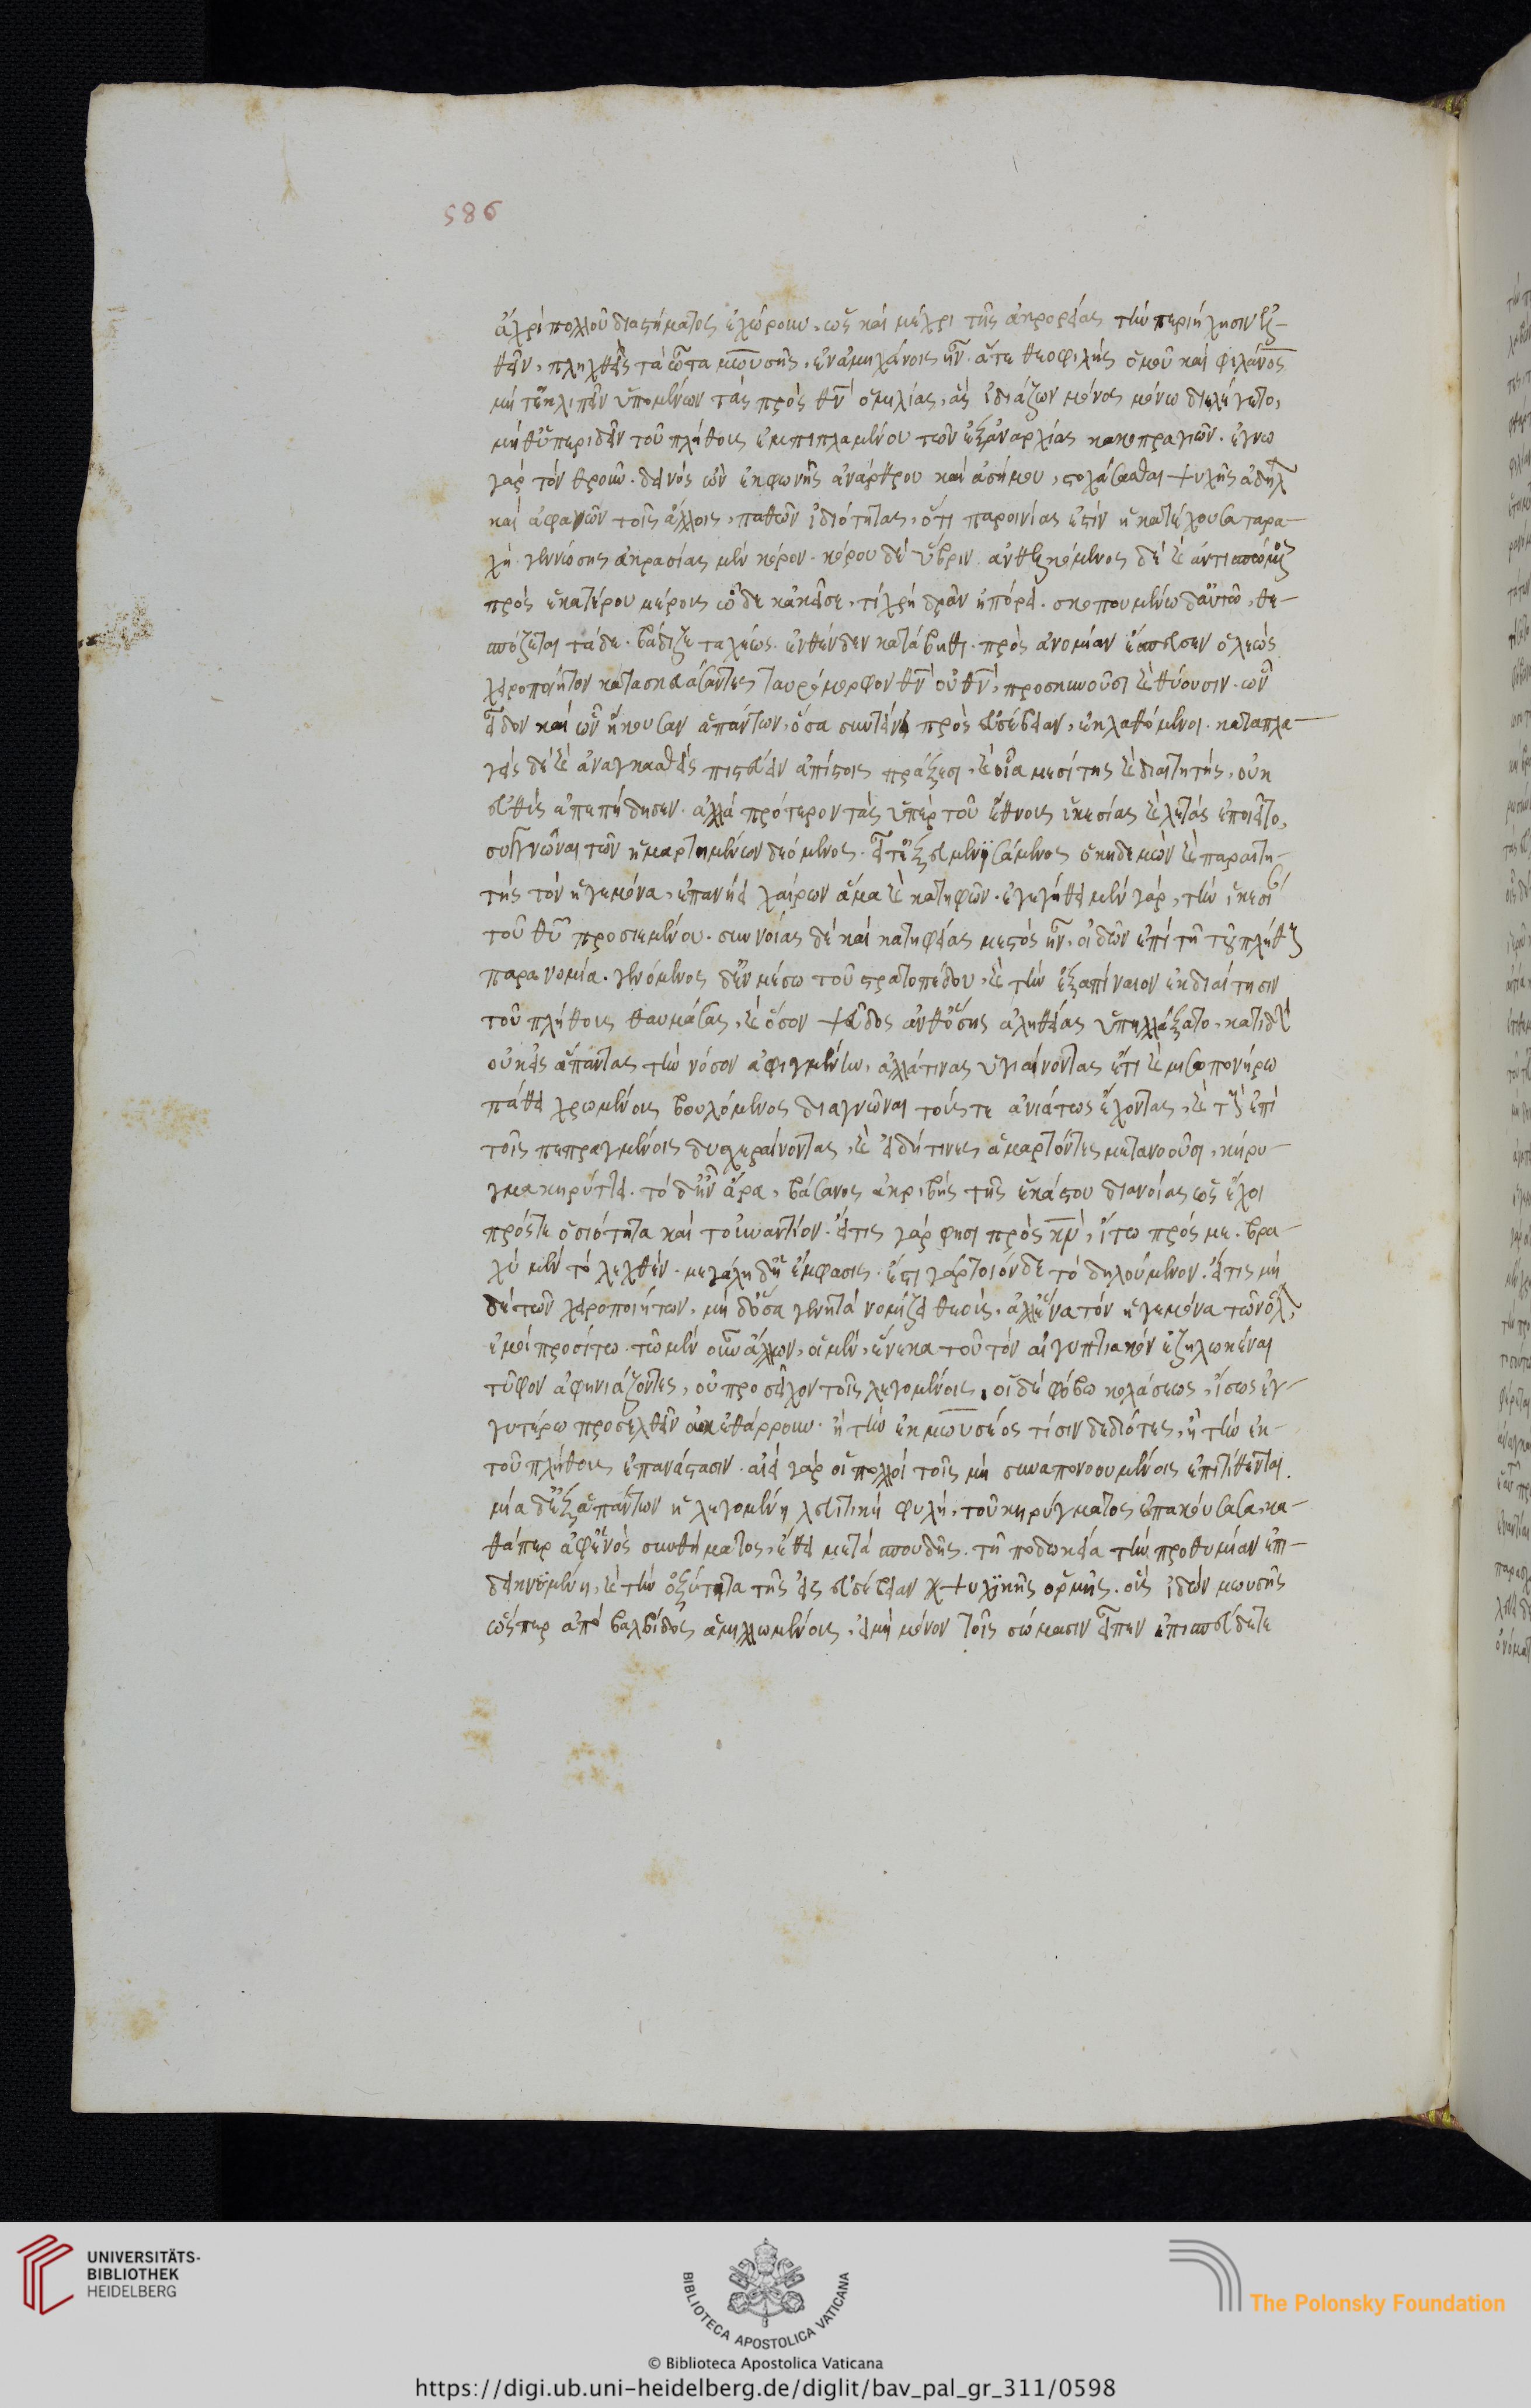 586
ἄχρι πολλοῦ διαστήματος ἐχώρουν, ὡς καὶ μέχρι τῆς ἀκρορείας τὴν περιήχησιν ἐλ-
θεῖν, πληχθεὶς τὰ ὦτα μωυσῆς, ἐν ἀμηχάνοις ἦν. ἅτε θεοφιλὴς ὁμοῦ καὶ φιλάνος
μήτ' ἐκλιπεῖν ὑπομένων τὰς πρὸς θν ὁμιλίας, ἃς ἰδιάζων μόνος μόνω διελέγετο,
μήθ' ὑπεριδεῖν τοῦ πλήθους ἐμπιπλαμένου τῶν ἐξ ἀναρχίας κακοπραγιῶν. ἔγνω
γὰρ τὸν θροῦν. δεινὸς ὢν ἐκ φωνῆς ἀνάρθρου καὶ ἀσήμου, στοχάσασθαι ψυχῆς ἀδήλ
καὶ ἀφανῶν τοῖς ἄλλοις, παθῶν ἰδιότητας, ὅτι παροινίας ἐστὶν ἡ κατέχουσα ταρα-
χή. γεννώσης ἀκρασίας μὲν κόρον. κόρου δὲ ὕβριν. ἀνθελκόμενος δὲ καὶ ἀντισπώμενος
πρὸς ἑκατέρου μέρους ὧδε κἀκεῖσε, τί χρὴ δρᾶν ἠπόρει. σκοπουμένω δ' αὐτῶ, θε-
σπίζεται τάδε. βάδιζε ταχέως. ἐνθένδεν κατάβηθι. πρὸς ἀνομίαν ἔσπευσεν ὁ λεώς
χειροποίητον κατασκευάσαντες ταυρόμορφον θν οὐ θν, προσκυνοῦσι καὶ θύουσιν. ὧν
εἶδον καὶ ὧν ἤκουσαν ἁπάντων, ὅσα συντείνει πρὸς εὐσέβειαν, ἐκλαθόμενοι. καταπλα-
γεὶς δὲ καὶ ἀναγκασθεὶς πιστεύειν ἀπίστοις πράξεσι, καὶ οἷα μεσίτης καὶ διαιτητής, οὐκ
εὐθὺς ἀπεπήδησεν. ἀλλὰ πρότερον τὰς ὑπὲρ τοῦ ἔθνους ἱκεσίας καὶ λιτὰς ἐποιεῖτο,
συγγνῶναι τῶν ἡμαρτημένων δεόμενος. εἶτ' ἐξευμενισάμενος ὁ κηδεμὼν καὶ παραιτη-
τὴς τὸν ἡγεμόνα, ἐπανήει χαίρων ἅμα καὶ κατηφῶν. ἐγεγήθει μὲν γὰρ, τὴν ἱκεσί
τοῦ θυ προσιεμένου. συννοίας δὲ καὶ κατηφείας μεστὸς ἦν. οἰδῶν ἐπὶ τῆ τοῦ πλήθους
παρανομία. γενόμενος δ' ἐν μέσω τοῦ στρατοπέδου, καὶ τὴν ἐξαπίναιον ἐκδιαίτησιν
τοῦ πλήθους θαυμάσας, καὶ ὅσον ψεῦδος ἀνθ' ὅσης ἀληθείας ὑπηλλάξατο, κατιδὼν
οὐκ εἰς ἅπαντας τὴν νόσον ἀφιγμένην, ἀλλά τινας ὑγιαίνοντας ἔτι καὶ μισοπονήρω
πάθει χρωμένους βουλόμενος διαγνῶναι τούς τε ἀνιάτως ἔχοντας, καὶ τοὺς ἐπὶ
τοῖς πεπραγμένοις δυσχεραίνοντας, καὶ εἰ δή τινες ἁμαρτόντες μετανοοῦσι, κήρυ-
γμα κηρύττει. τὸ δ' ἦν ἄρα, βάσανος ἀκριβὴς τῆς ἑκάστου διανοίας ὡς ἔχοι
πρός τε ὁσιότητα καὶ τοὐναντίον. εἴ τις γάρ φησι πρὸς κν, ἴτω πρός με. βρα-
χὺ μὲν τὸ λεχθέν. μεγάλη δ' ἡ ἔμφασις. ἔστι γὰρ τοιόνδε τὸ δηλούμενον. εἴ τις μὴ
δὲ τῶν χειροποιήτων, μὴ δ' ὅσα γενητὰ νομίζει θεοὺς, ἀλλ' ἕνα τὸν ἡγεμόνα τῶν ὅλ,
ἐμοὶ προσίτω. τῶ μὲν οὖν ἄλλων, οἱ μὲν, ἕνεκα τοῦ τὸν αἰγυπτιακὸν ἐζηλωκέναι
τῦφον ἀφηνιάζοντες, οὐ προσεῖχον τοῖς λεγομένοις. οἱ δὲ φόβω κολάσεως, ἴσως ἐγ-
γυτέρω προσελθεῖν οὐκ ἐθάρρουν. ἢ τὴν ἐκ μωυσέος τίσιν δεδιότες, ἢ τὴν ἐκ
τοῦ πλήθους ἐπανάστασιν. αἰεὶ γὰρ οἱ πολλοὶ τοῖς μὴ συναπονοουμένοις ἐπιτίθενται.
μία δ' ἐξ ἁπάντων ἡ λεγομένη λευιτικὴ φυλή, τοῦ κηρύγματος ἐπακούσασα, κα-
θάπερ ἀφ' ἑνὸς συνθήματος, ἔθει μετὰ σπουδῆς. τῆ ποδωκεία τὴν προθυμίαν ἐπι-
δεικνυμένη, καὶ τὴν ὀξύτητα τῆς εἰς εὐσέβειαν ψυχικῆς ὁρμῆς. οὓς ἰδὼν μωυσῆς
ὥσπερ ἀπὸ βαλβῖδος ἁμιλλωμένους, εἰ μὴ μόνον τοῖς σώμασιν εἶπεν ἐπισπεύδετε
UNIVERSITÄTS-
BIBLIOTHEK
HEIDELBERG
BIBLIOTECA APOSTOLICA VATICANA
The Polonsky Foundation
© Biblioteca Apostolica Vaticana
https://digi.ub.uni-heidelberg.de/diglit/bav_pal_gr_311/0598